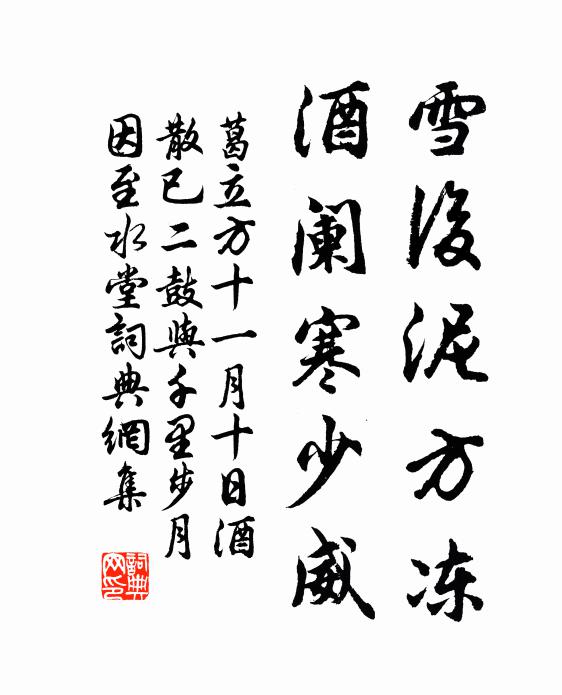 雪後泥方冻
酒阑寒少威
葛立方十一月十日酒
散已二鼓與千里步月
因至水堂詞典網集
詞典
网印